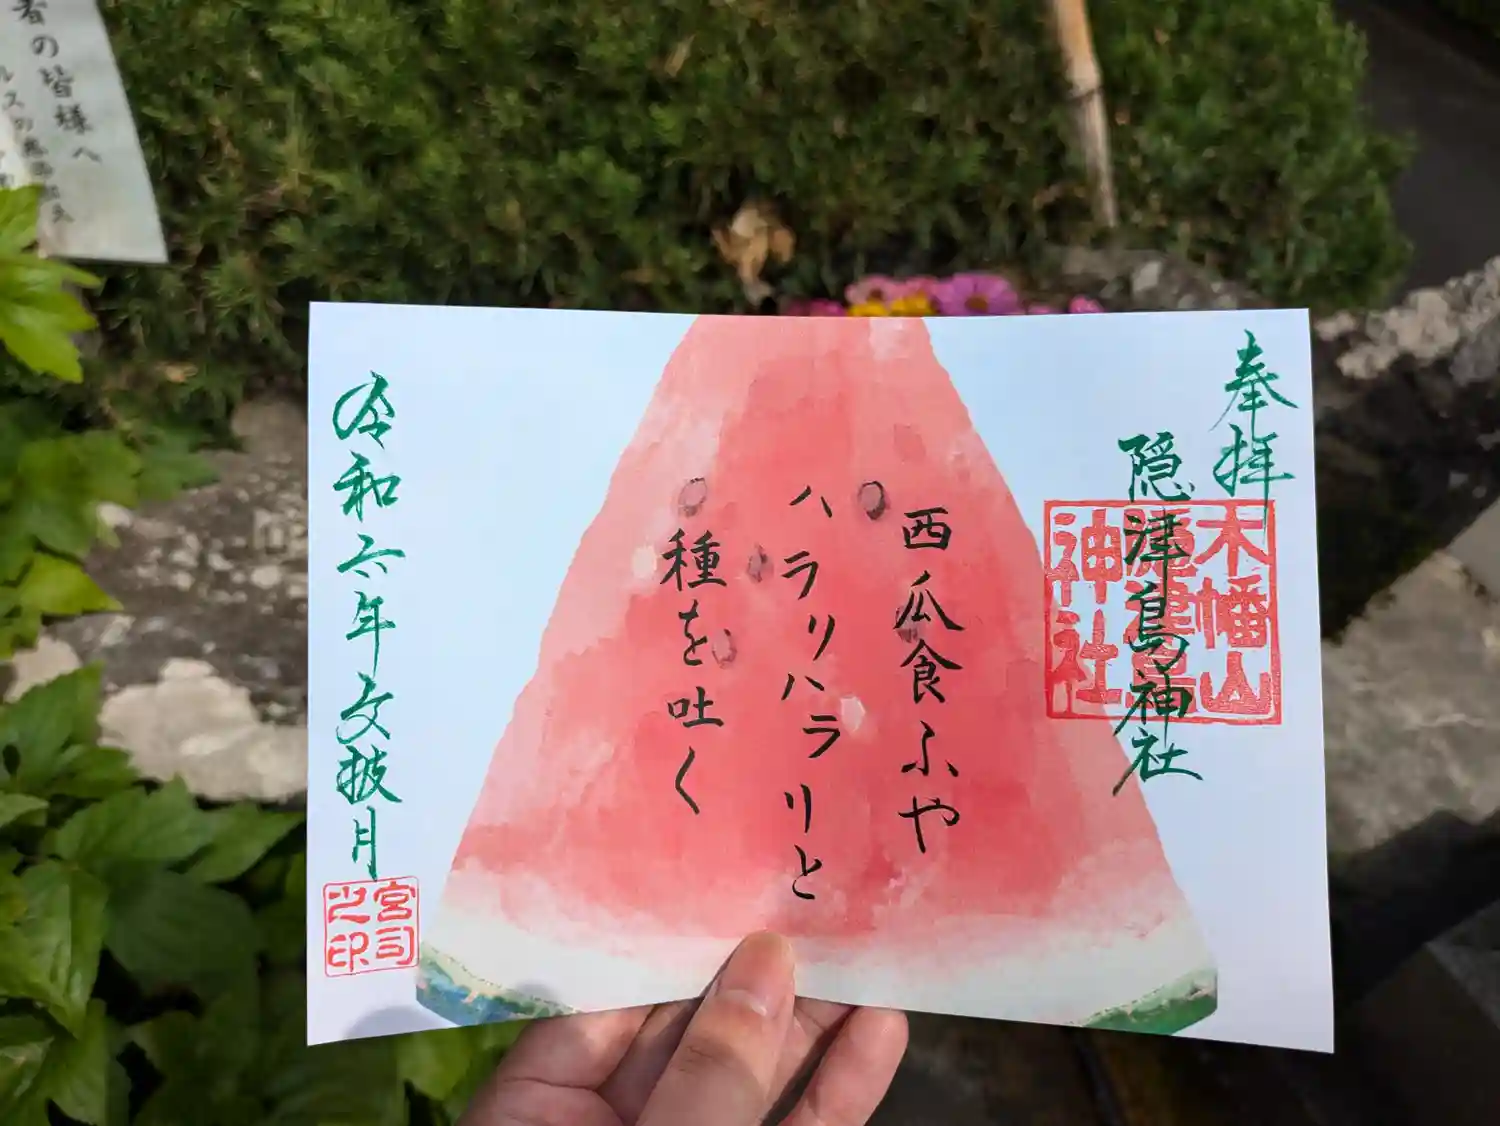 奉拝
隠津島神社
木幡山
隠津島
神社
西瓜食ふや
ハラリハラリと
種を吐く
令和六年文披月
宮司
之印
者の皆様へ